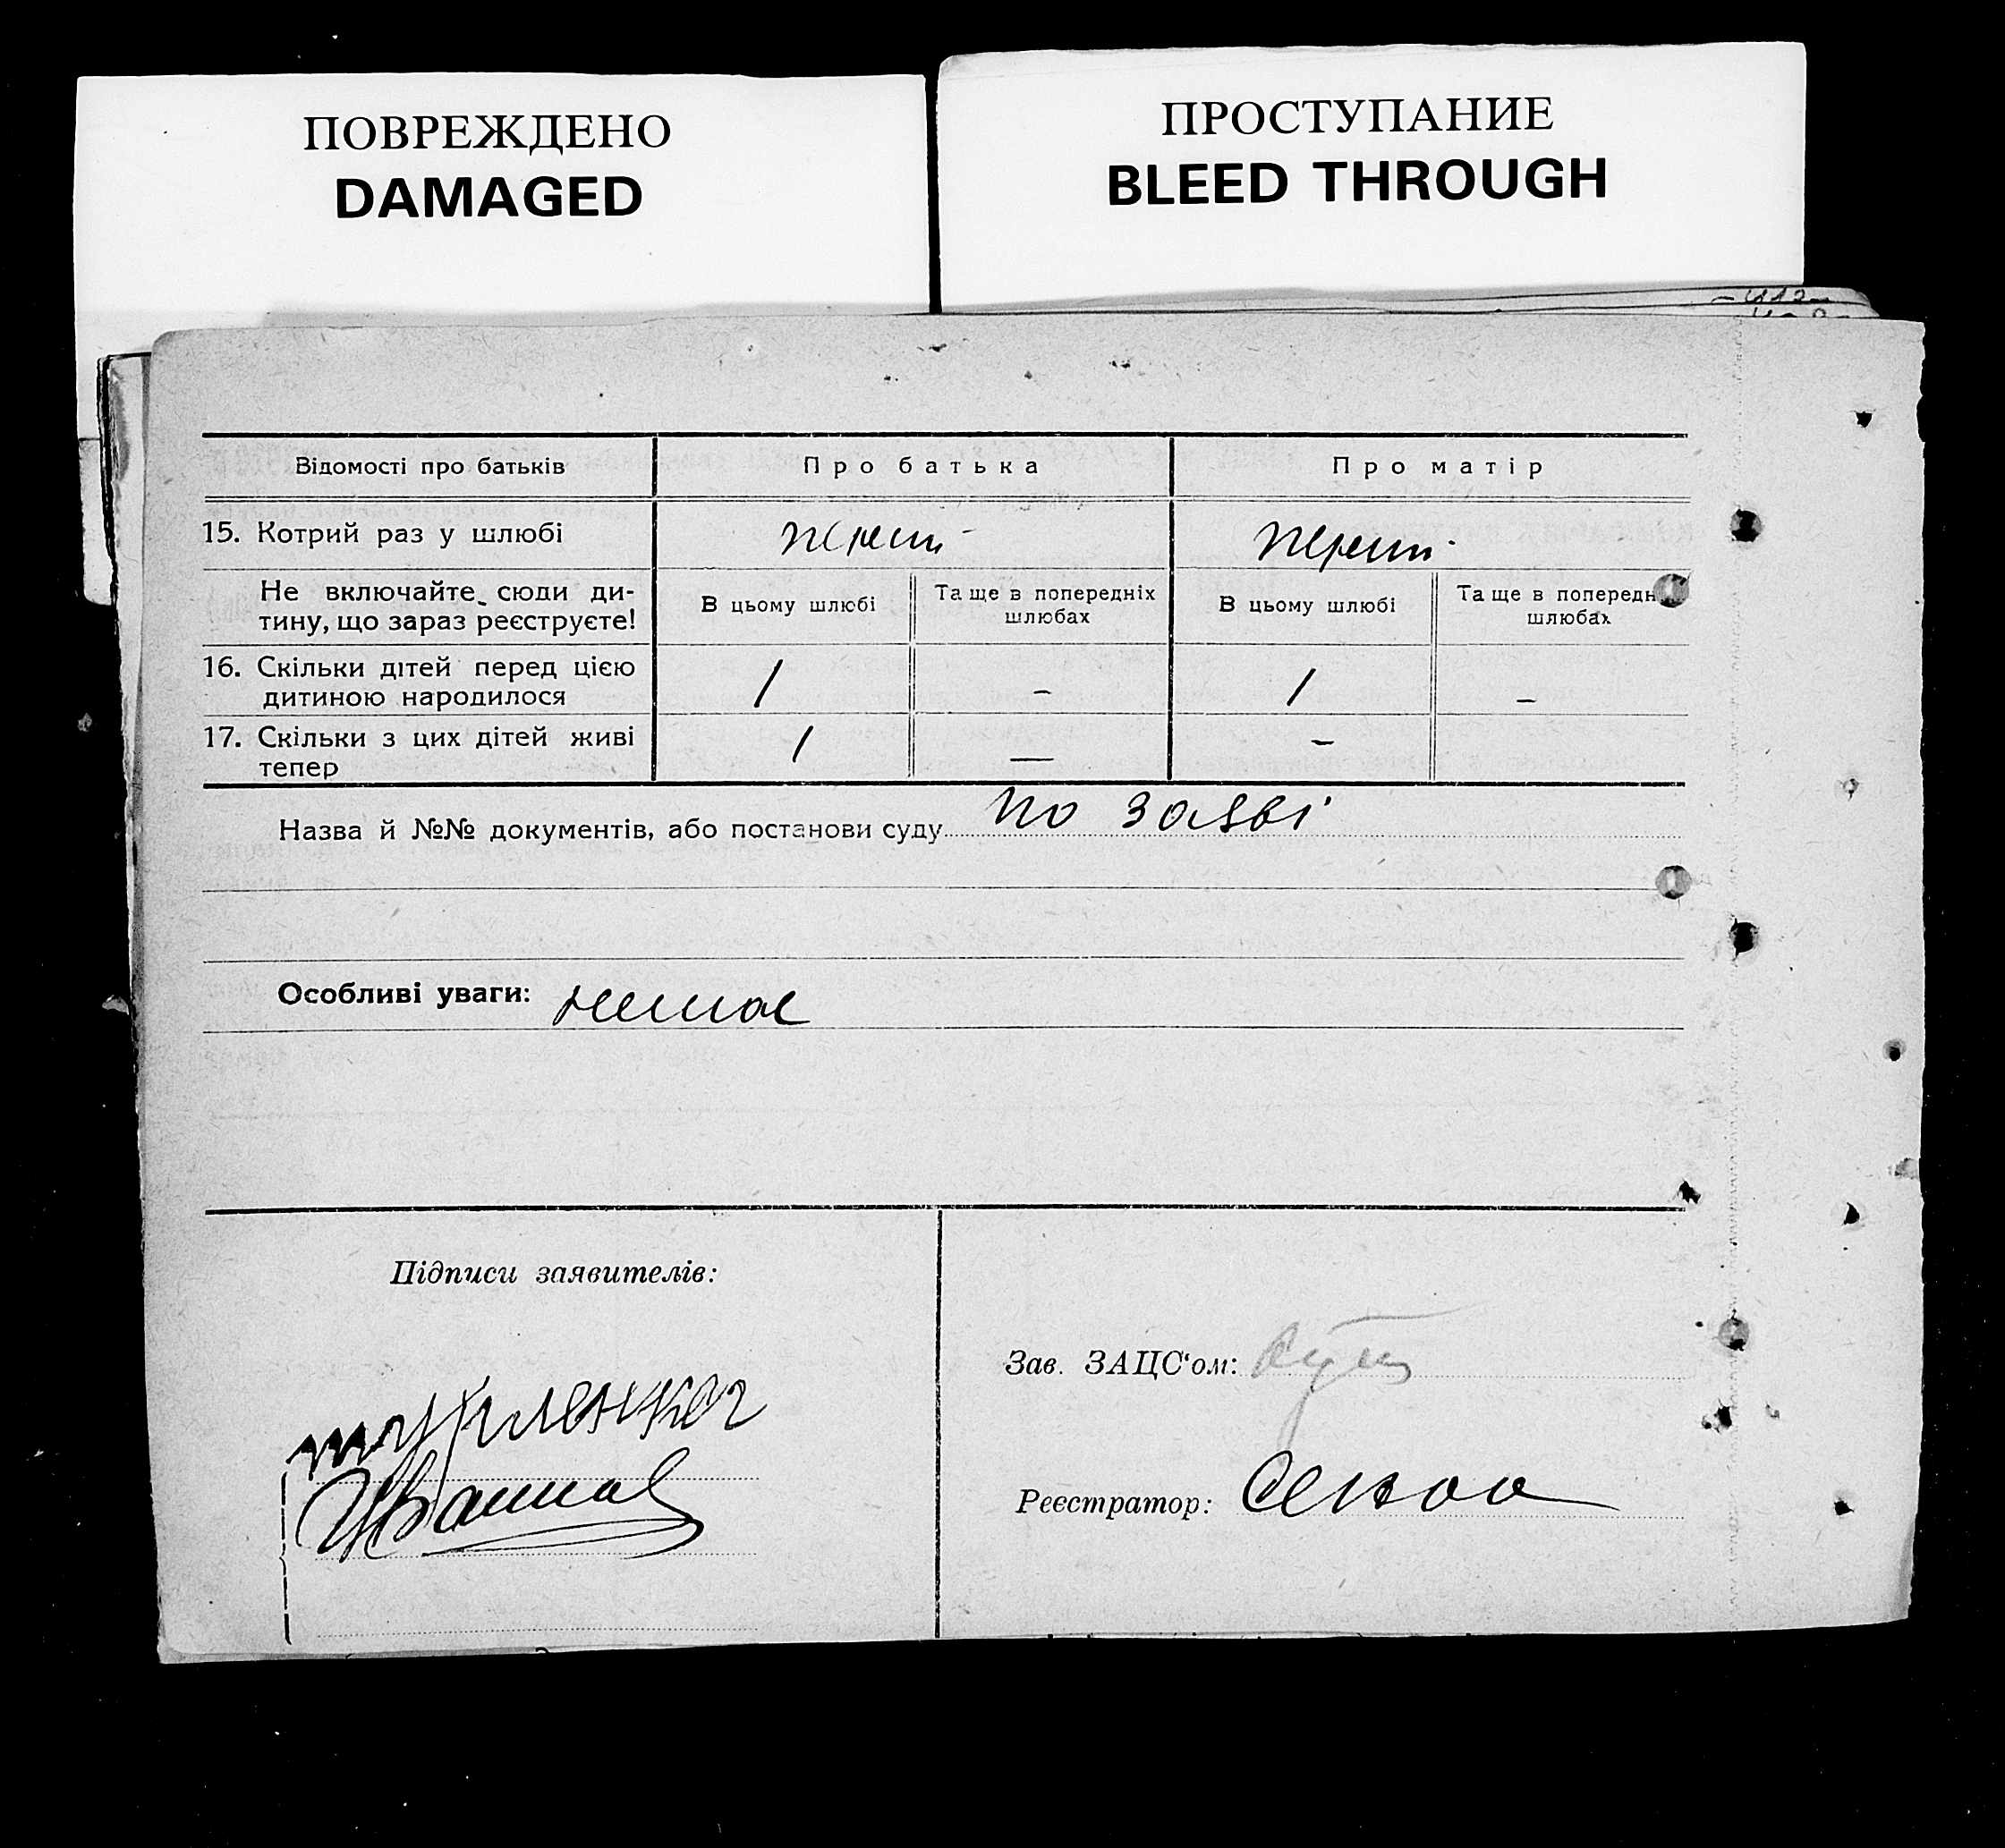 ПОВРЕЖДЕНО
DAMAGED
ПРОСТУПАНИЕ
BLEED THROUGH
Відомості про батьків Про батька Про матір
15. Котрий раз у шлюбі перший перший
Не включайте сюди ди-
тину, що зараз реєструєте!
В цьому шлюбі
Та ще в попередніх
шлюбах
В цьому шлюбі
Та ще в попередн
шлюбах
16. Скільки дітей перед цією
дитиною народилося
1 – 1 –
17. Скільки з цих дітей живі
тепер
1 — –
Назва й №№ документів, або постанови суду по заяві
Особливі уваги: немає
Підписи заявителів:
Зав. ЗАЦС‘ом:
Реєстратор: